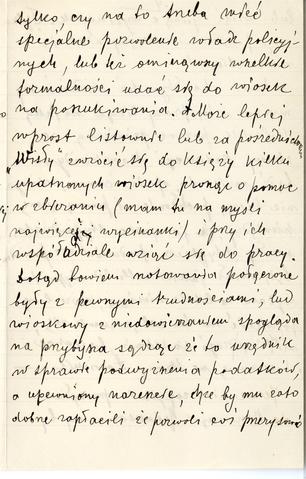 tylko, czy na to trzeba mieć
specjalne pozwolenie władz policyj-
nych, lub też ominąwszy wszelkie
formalności udać się do wiosek
na poszukiwania. Może lepiej
wprost listownie lub za pośrednictwem
"Wisły" zwrócić się do księży kilku
upatrzonych wiosek prosząc o pomoc
w zbieraniu (mam tu na myśli
najwięcej wycinanki) i przy ich
współudziale wziąć się do pracy.
Dotąd bowiem notowania połączone
były z pewnymi trudnościami, lud
wioskowy z niedowierzaniem spogląda
na przybysza sądząc że to urzędnik
w sprawie podwyższenia podatków,
a upewniony nareszcie, chce by mu zato
dobrze zapłacili że pozwoli coś przerysować